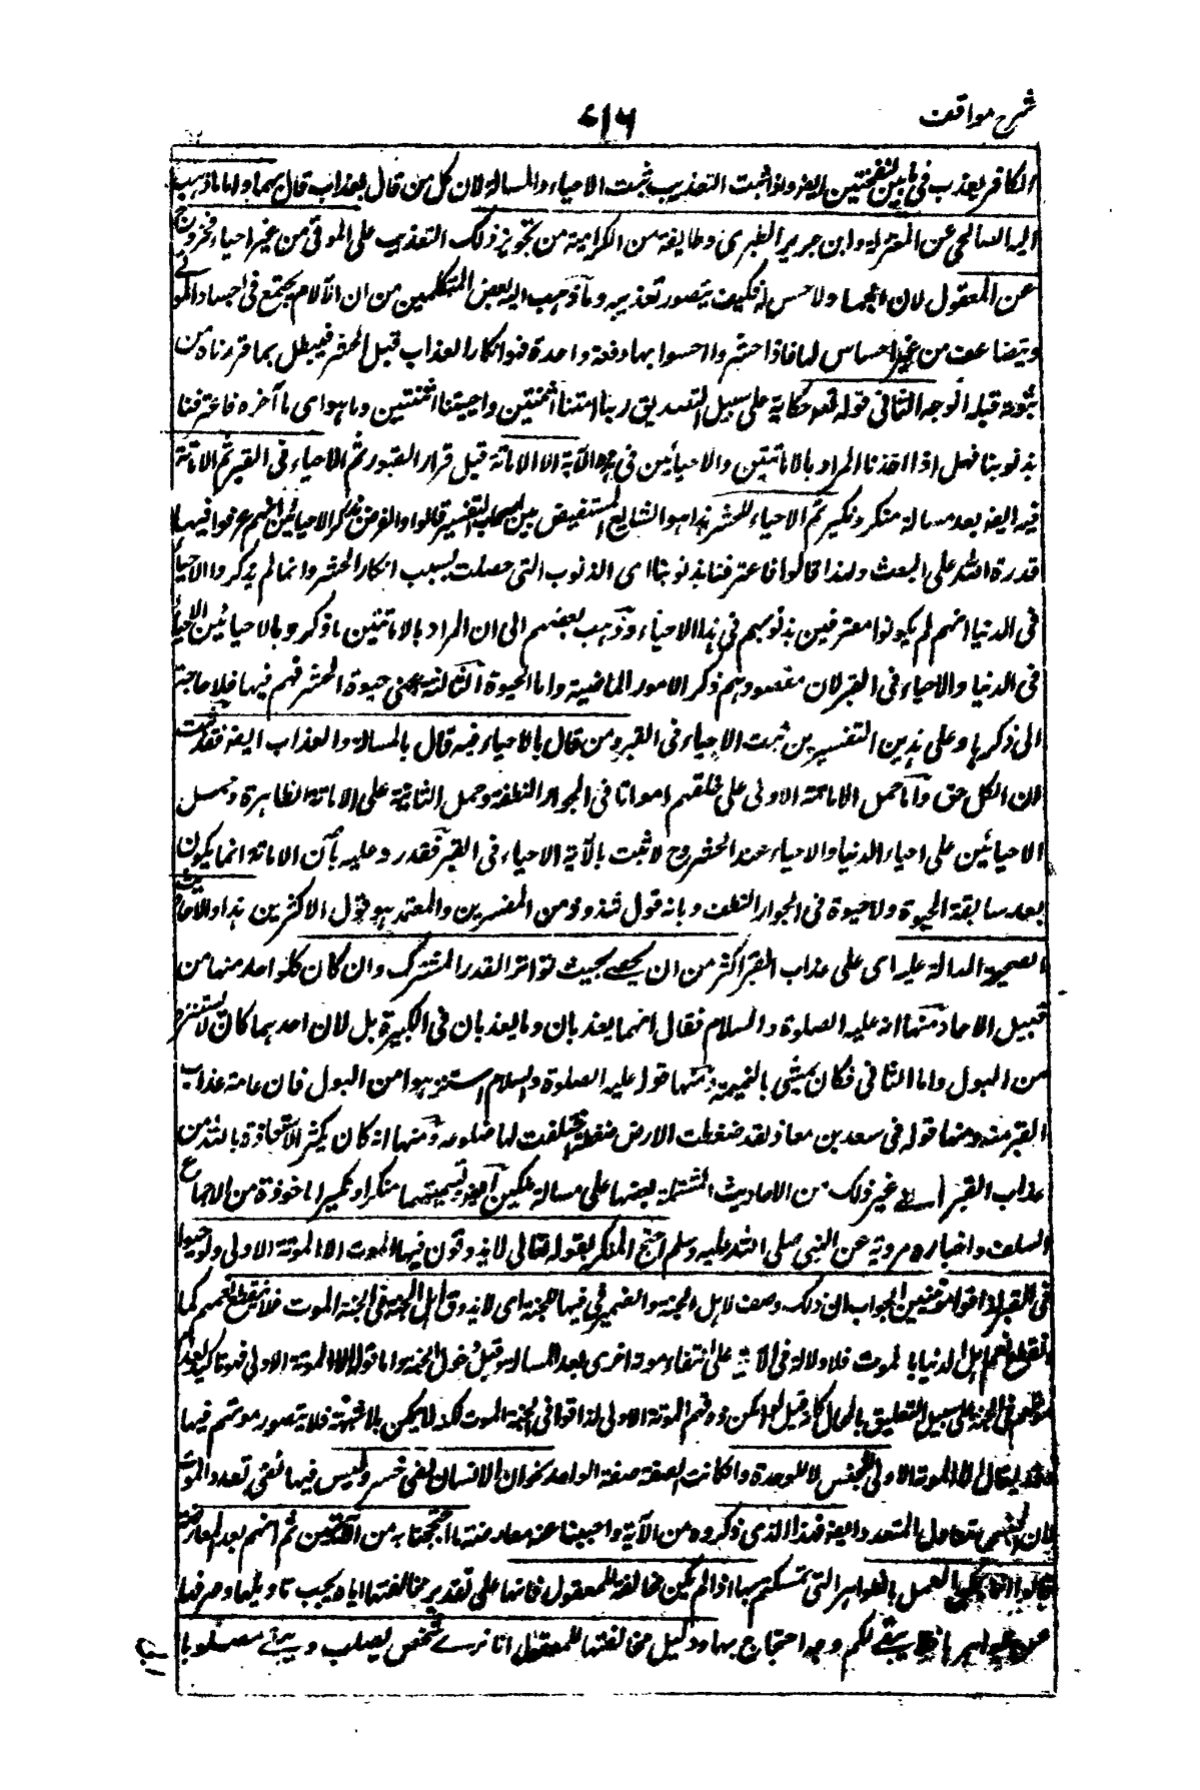 شرح مواقف
٧١٦
الكافر يعذب فى ما بين النفختين ايضا واذا ثبت التعذيب ثبت الاحياء والمسالة لان كل من قال بعذاب قال بهما واما ما ذهب
اليه الصالحى عن المعتزلة وابن جرير الطبرى وطايفة من الكرامية من تجويز ذلك التعذيب على الموتى من غير احياء فخروج
عن المعقول لان الجماد لا حس له فكيف يتصور تعذيبه وما ذهب اليه بعض المتكلمين من ان الآلام يجتمع فى اجساد الموتى
ويتضاعف من غير احساس لها فاذا حشروا احسوا بها دفعة واحدة فهو انكار العذاب قبل الحشر فيبطل بما قررناه من
ثبوته قبله الوجه الثانى قوله تعم حكاية على سبيل التصديق ربنا امتنا اثنتين واحييتنا اثنتين وما هو اى ما آخره فاعترفنا
بذنوبنا فهل اذا اخذنا المراد بالاماتتين والاحيائين فى هذه الآية الا الاماتة قبل قرار القبور ثم الاحياء فى القبر ثم الاماتة
فيه ايضا بعد مسالة منكر ونكير ثم الاحياء للحشر هذا هو الشايع المستفيض بين اصحاب التفسير قالوا والغرض بذكر الاحيائين انهم عرفوا فيهما
قدرة الله على البعث ولهذا قالوا فاعترفنا بذنوبنا اى الذنوب التى حصلت بسبب انكار الحشر وانما لم يذكروا الاحياء
فى الدنيا انهم لم يكونوا معترفين بذنوبهم فى هذا الاحياء وذهب بعضهم الى ان المراد بالاماتتين ما ذكر وبالاحيائين الاحياء
فى الدنيا والاحياء فى القبر لان مقصودهم ذكر الامور الماضية واما الحيوة الثالثة اعنى حيوة الحشر فهم فيها فلا حاجة
الى ذكرها وعلى هذين التفسيرين ثبت الاحياء فى القبر ومن قال بالاحياء فيه قال بالمسالة والعذاب ايضا فقد ثبت
ان الكل حق واما حمل الاماتة الاولى على خلقهم امواتا فى اطوار النطفة وحمل الثانية على الاماتة الظاهرة وحمل
الاحيائين على احياء الدنيا والاحياء عند الحشر وح لا ثبت بالآية الاحياء فى القبر فقد رد عليه بأن الاماتة انما يكون
بعد سابقة الحيوة ولا حيوة فى اطوار النطف وبانه قول شذوذ من المفسرين والمعتمد هو قول الاكثرين هذا والاحاديث
الصحيحة الدالة عليه اى على عذاب القبر اكثر من ان يحصى بحيث تواتر القدر المشترك وان كان كل واحد منها من
قبيل الاحاد منها انه عليه الصلوة والسلام فقال انهما يعذبان وما يعذبان فى الكبيرة بل لان احدهما كان لا يستنزه
من البول واما الثانى فكان يمشى بالنميمة ومنها قوله عليه الصلوة والسلام استنزهوا من البول فان عامة عذاب
القبر منه ومنها قوله فى سعد بن معاذ لقد ضغطت الارض ضغطة اختلفت لها ضلوعه ومنها انه كان يكثر الاستعاذة بالله من
عذاب القبر الى غير ذلك من الاحاديث المشتملة بعضها على مسالة ملكين ايضا وتسميتهما منكرا ونكيرا ماخوذة من الاجماع
السلف واخباره مروية عن النبى صلى الله عليه وسلم احتج المنكر بقوله تعالى لا يذوقون فيها الموت الا الموتة الاولى ولو احيوا
فى القبر لذاقوا موتتين الجواب ان ذلك وصف لاهل الجنة والضمير فى فيها للجنة اى لا يذوق اهل الجنة فى الجنة الموت فلا ينقطع نعيمهم كما
انقطع نعيم اهل الدنيا بالموت فلا دلالة فى الآية على انتفاء موتة اخرى بعد المسالة وقبل دخول الجنة واما قوله الا الموتة الاولى فهو تاكيد لعدم
موتهم فى الجنة على سبيل التعليق بالمحال كانه قيل لو امكن ذوقهم الموتة الاولى لذاقوا فى الجنة الموت لكنه لا يمكن بلا شبهة فلا يتصور موتهم فيها
وقد يقال الا الموتة الاولى للجنس لا للوحدة وان كانت الصفة صفة الواحد نحو ان الانسان لفى خسر وليس فيها نفى تعدد الموت
لان الجنس يتناول المتعدد وايضا فهذا الذى ذكروه من الآية واجبنا عنه معارضة ما احتججنا به من الآيتين ثم انهم بعد المعارضة
قالوا انما يمكن العمل بالظواهر التى تمسكتم بها اذا لم يكن مخالفة للمعقول فانها على تقدير مخالفتها اياه يجب تاويلها وصرفها
عن ظواهرها فلا يبقى لكم وجه احتجاج بها ودليل مخالفتها للمعقول انا نرى شخص يصلب ويبقى مصلوبا